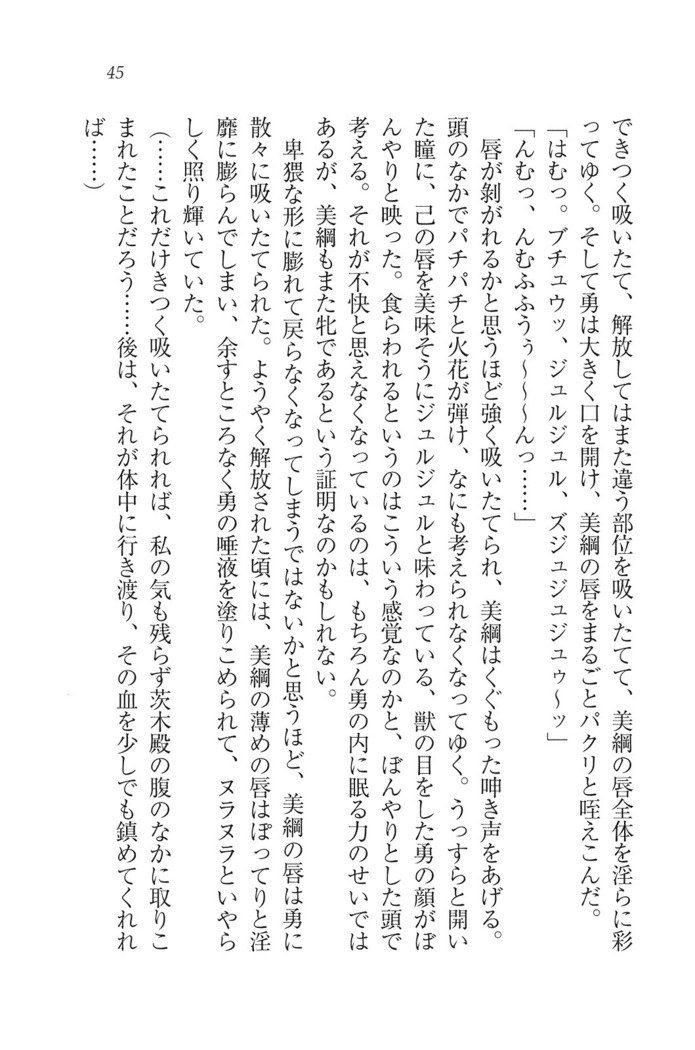 45
できつく吸いたて、解放してはまた違う部位を吸いたてて、美綱の唇全体を淫らに彩
ってゆく。そして勇は大きく口を開け、美綱の唇をまるごとパクリと咥えこんだ。
「はむっ。ブチュウッ、ジュルジュル、ズジュジュジュゥ～ッ」
「んむっ、んむふふうぅ～～～んっ……」
唇が剝がれるかと思うほど強く吸いたてられ、美綱はくぐもった呻き声をあげる。
頭のなかでパチパチと火花が弾け、なにも考えられなくなってゆく。うっすらと開い
た瞳に、己の唇を美味そうにジュルジュルと味わっている、獣の目をした勇の顔がぼ
んやりと映った。食らわれるというのはこういう感覚なのかと、ぼんやりとした頭で
考える。それが不快と思えなくなっているのは、もちろん勇の内に眠る力のせいでは
あるが、美綱もまた牝であるという証明なのかもしれない。
卑猥な形に膨れて戻らなくなってしまうではないかと思うほど、美綱の唇は勇に
散々に吸いたてられた。ようやく解放された頃には、美綱の薄めの唇はぽってりと淫
靡に膨らんでしまい、余すところなく勇の唾液を塗りこめられて、ヌラヌラといやら
しく照り輝いていた。
（……これだけきつく吸いたてられれば、私の気も残らず茨木殿の腹のなかに取りこ
まれたことだろう……後は、それが体中に行き渡り、その血を少しでも鎮めてくれれ
ば……）